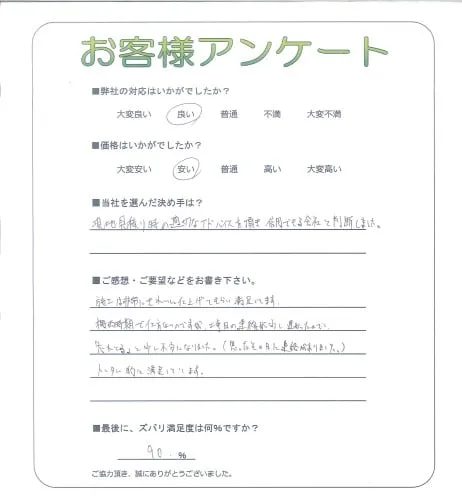 お客様アンケート
■弊社の対応はいかがでしたか？
大変良い 良い 普通 不満 大変不満
■価格はいかがでしたか？
大変安い 安い 普通 高い 大変高い
■当社を選んだ決め手は？
現地見積り時の適切なアドバイスを頂き 信用できる会社と判断しました。
■ご感想・ご要望などをお書き下さい。
施工は非常にきれいに仕上げてもらい満足してます。
梅雨時期で仕方ないのですが、工事日の連絡が少し遅れたので、
と少し不安になりました。(その日に連絡がありました。)
トータル的に満足しています。
■最後に、ズバリ満足度は何%ですか？
90 %
ご協力頂き、誠にありがとうございました。